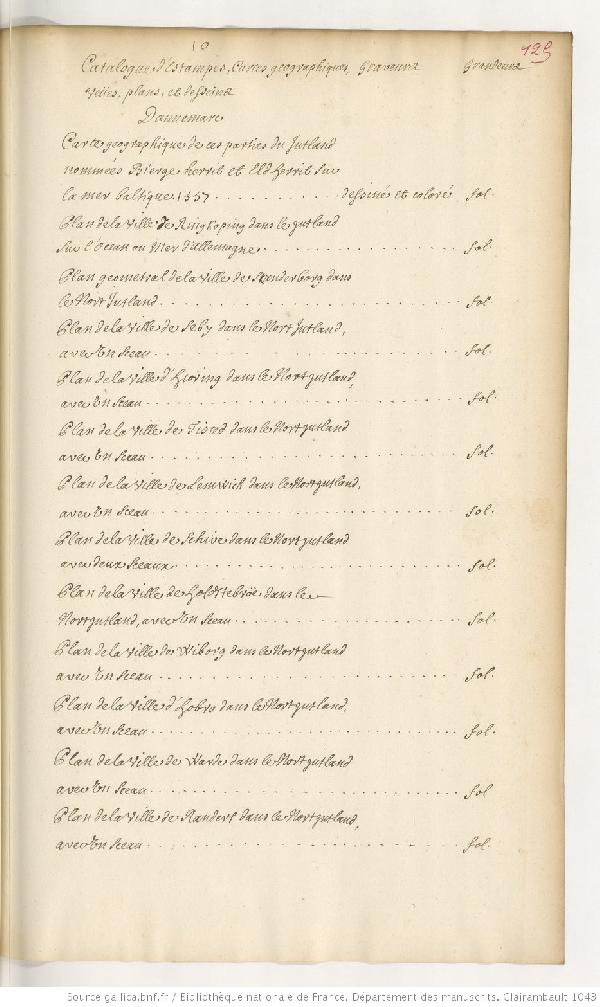 10
129
Catalogue d'Estampes, Cartes geographiques, Graveurs Grandeurs
Villes, plans, et dessins
Dannemarc
Carte geographique de ces parties du Jutland
nommées Bierge herrit et Eld herrit sur
la mer baltique 1557 dessiné et coloré fol.
Plan de la Ville de Ringkoping dans le gutland
sur l'Ocean ou Mer d'allemagne fol.
Plan geometral de la Ville de Skanderborg dans
le Nort Jutland fol.
Plan de la Ville de Seby dans le Nort Jutland,
avec Un sceau fol.
Plan de la Ville d'Hioring dans le Nortgutland,
avec Un sceau fol.
Plan de la Ville de Tisted dans le Nortgutland
avec Un sceau fol.
Plan de la Ville de Lemwick dans le Nortgutland,
avec Un sceau fol.
Plan de la Ville de Schive dans le Nortgutland
avec deux sceaux fol.
Plan de la Ville de Holdstebröe dans le
Nortgutland, avec Un sceau fol.
Plan de la Ville de Wiborg dans le Nortgutland
avec Un sceau fol.
Plan de la Ville d'Hobro dans le Nortgutland,
avec Un sceau fol.
Plan de la Ville de Warde dans le Nortgutland
avec Un sceau fol
Plan de la Ville de Randers dans le Nortgutland,
avec Un sceau fol.
Source gallica.bnf.fr / Bibliothèque nationale de France. Département des manuscrits. Clairambault 1043